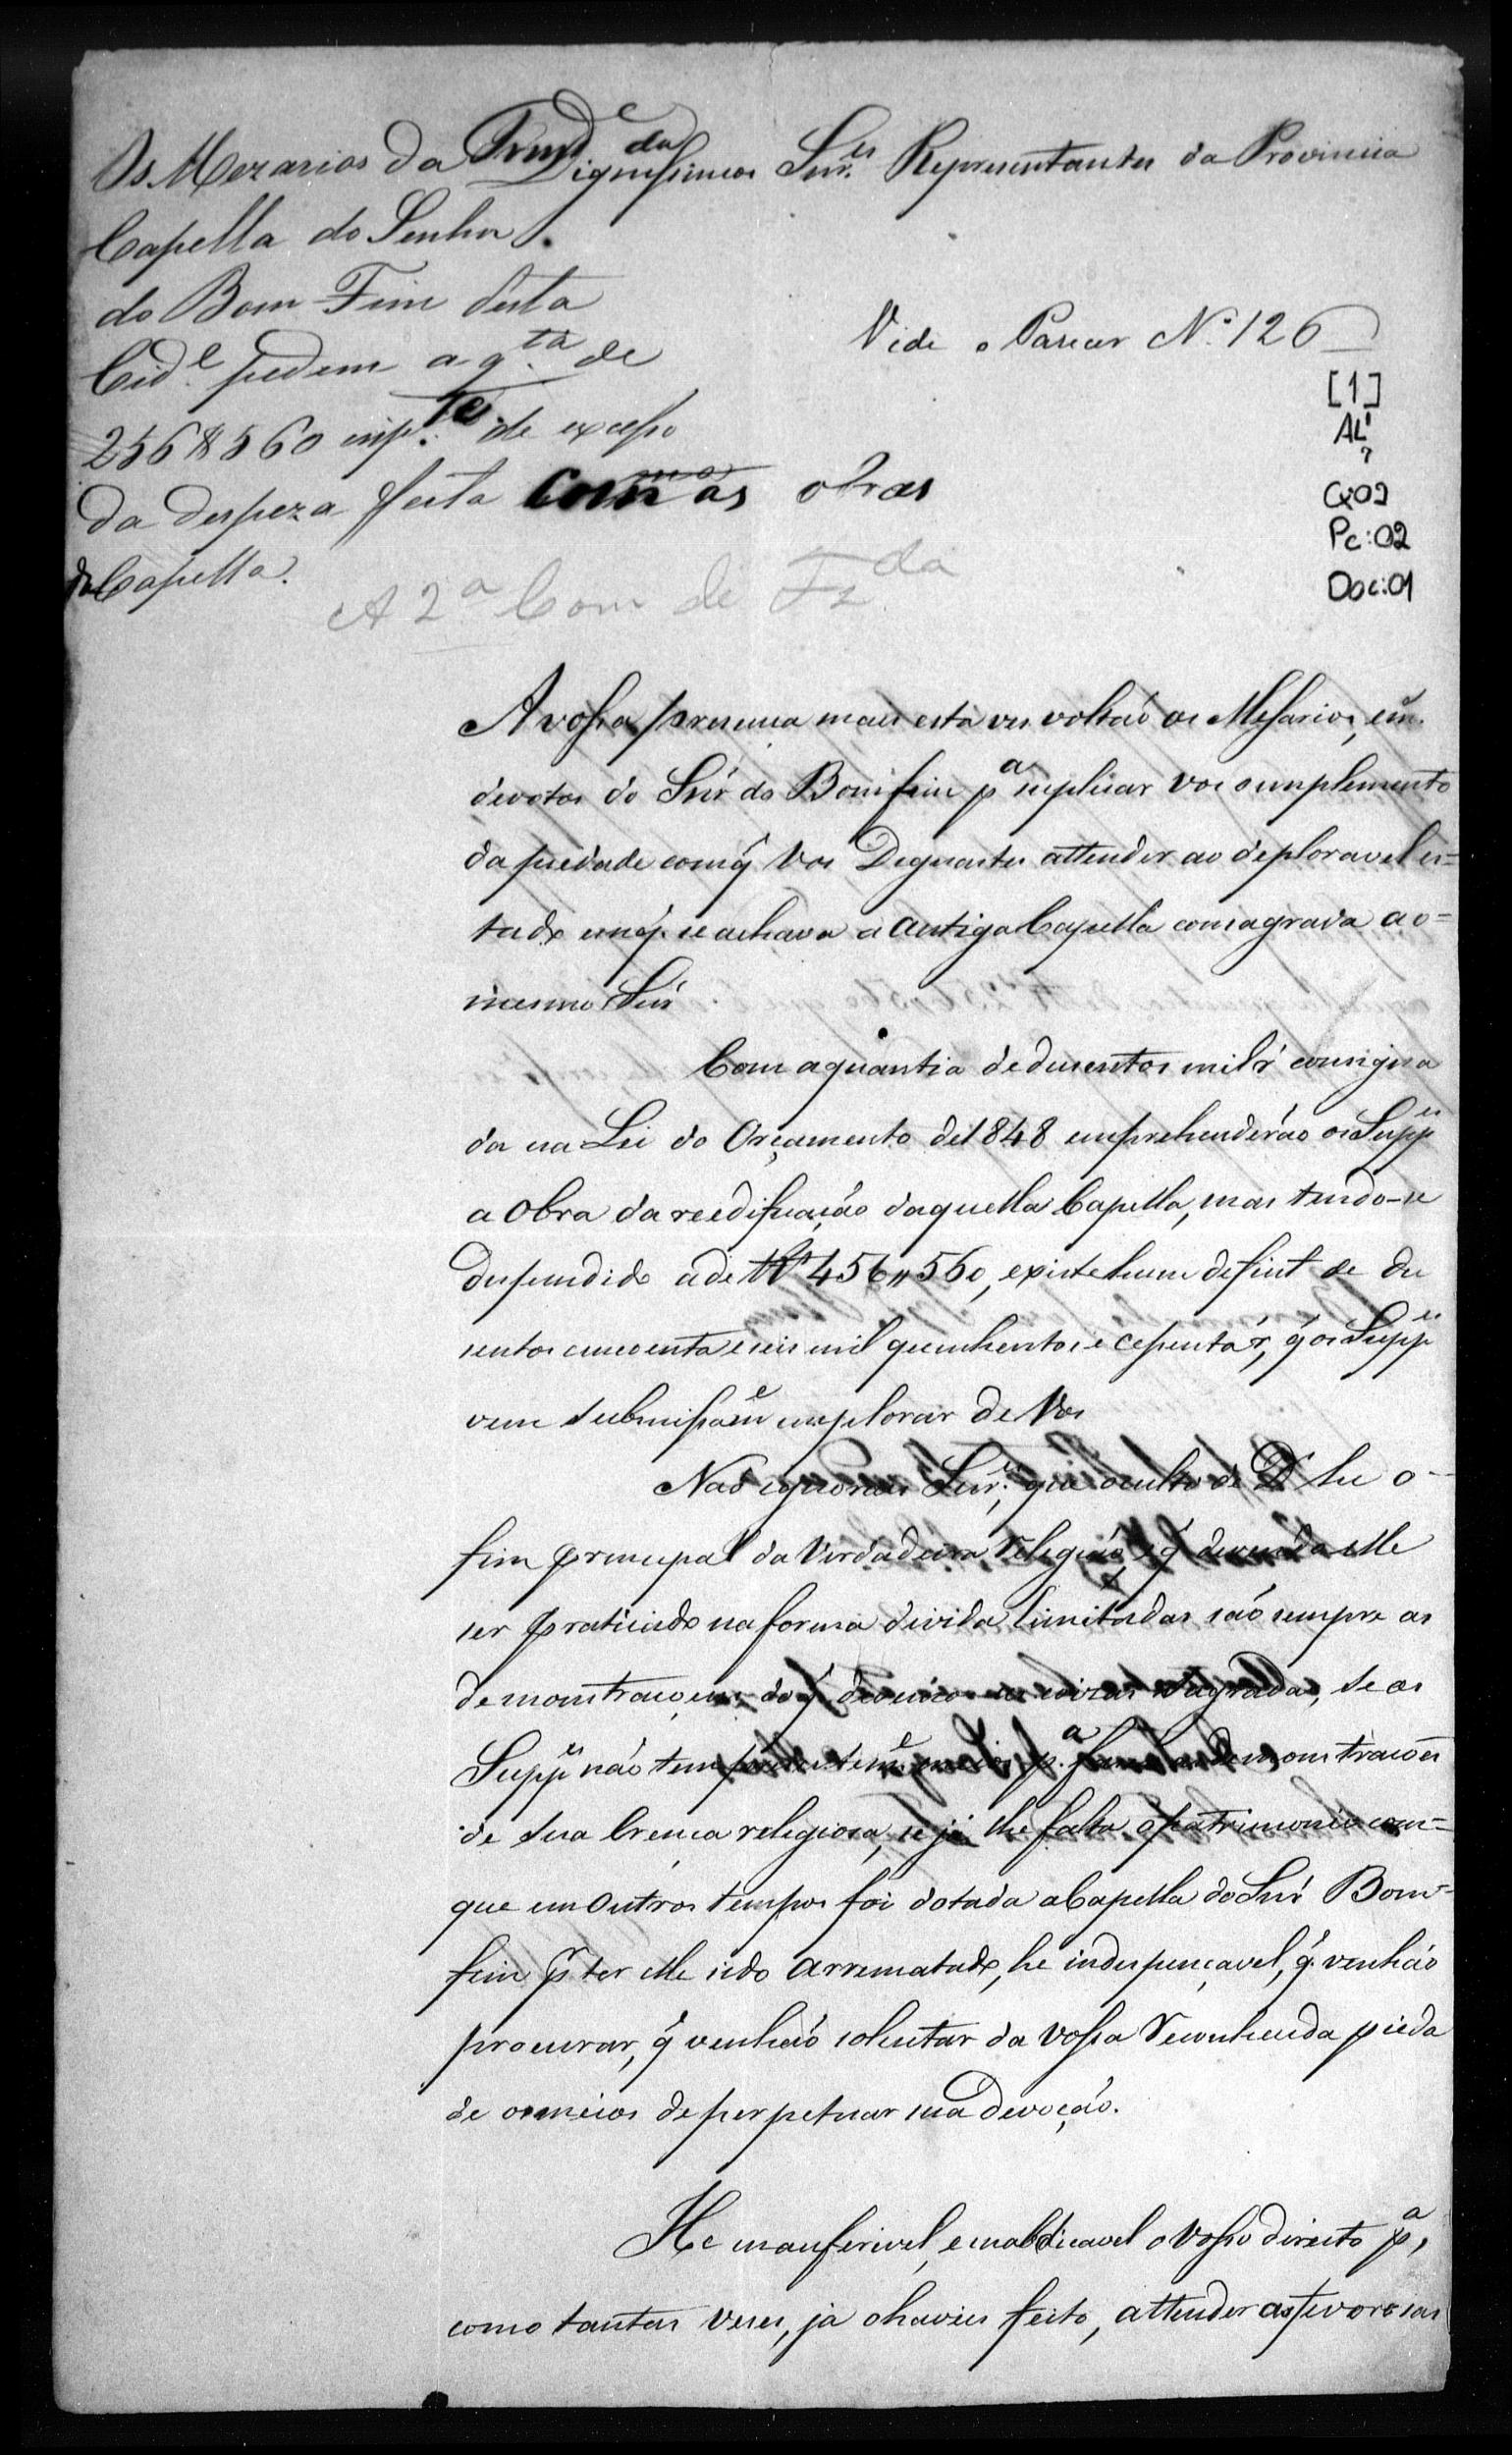 Dignissimos Snr.es Representantes da Provincia
Os Mezarios da Irmd.e da
Capella do Senhor
do Bom Fim desta
Cid.e pedem a q.ta de
256$560 imp.te de excesso
da despeza feita com as obras
da Capella.
Vide o Parecer N.º 126
[1]
AL1
?
Cx02
Pc:02
Doc:01
A 2ª Com de Fz.da
A vossa presença mais esta ves voltaõ os Mesarios, e im
devotos do Snr do Bomfim pª suplicar vos o cumplemento
da piedade com q̃ Vos Dignastes attender ao deploravel es=
tado em q̃ se achava a antiga Capella consagrada ao=
mesmo Snr
Com a quantia de dusentos mil rˢ consigna
da na Lei do Orçamento de 1848 emprehenderáo os Supp.es
a obra da reedificação daquella Capella, mas tendo-se
despendido a de Rˢ 456,,560, existe hum deficit de du
sentos cincoenta e seis mil quinhentos e cessenta rˢ, q̃ os Supp.es
vem submissam.e implorar de Vos
Naõ ignoraes Snr.es, que o culto de Dˢ he o=
fim principal da Verdadeira Religiáo, e q̃ devendo elle
ser praticado na forma divida limitadas sáo sempre as
demonstraçoens do q̃ devemos as coizas sagradas, se os
Supp.es náo tem presentem.e meios p.ª demonstraçoēs
de sua Crença religiosa, se já lhe falta o patrimonio com=
que em outros tempos foi dotada a Capella do Snr Bom=
fim p.r ter elle sido arrematado, he indespençavel, q̃ venháo
procurar, q̃ venháo solicitar da vossa reconhecida pieda
de os meios de perpetuar sua Devoçáo.
He inauferivel, e inabdicavel o Vosso direito pª,
como tantas veses, ja o haveis feito, attender as fervorosas